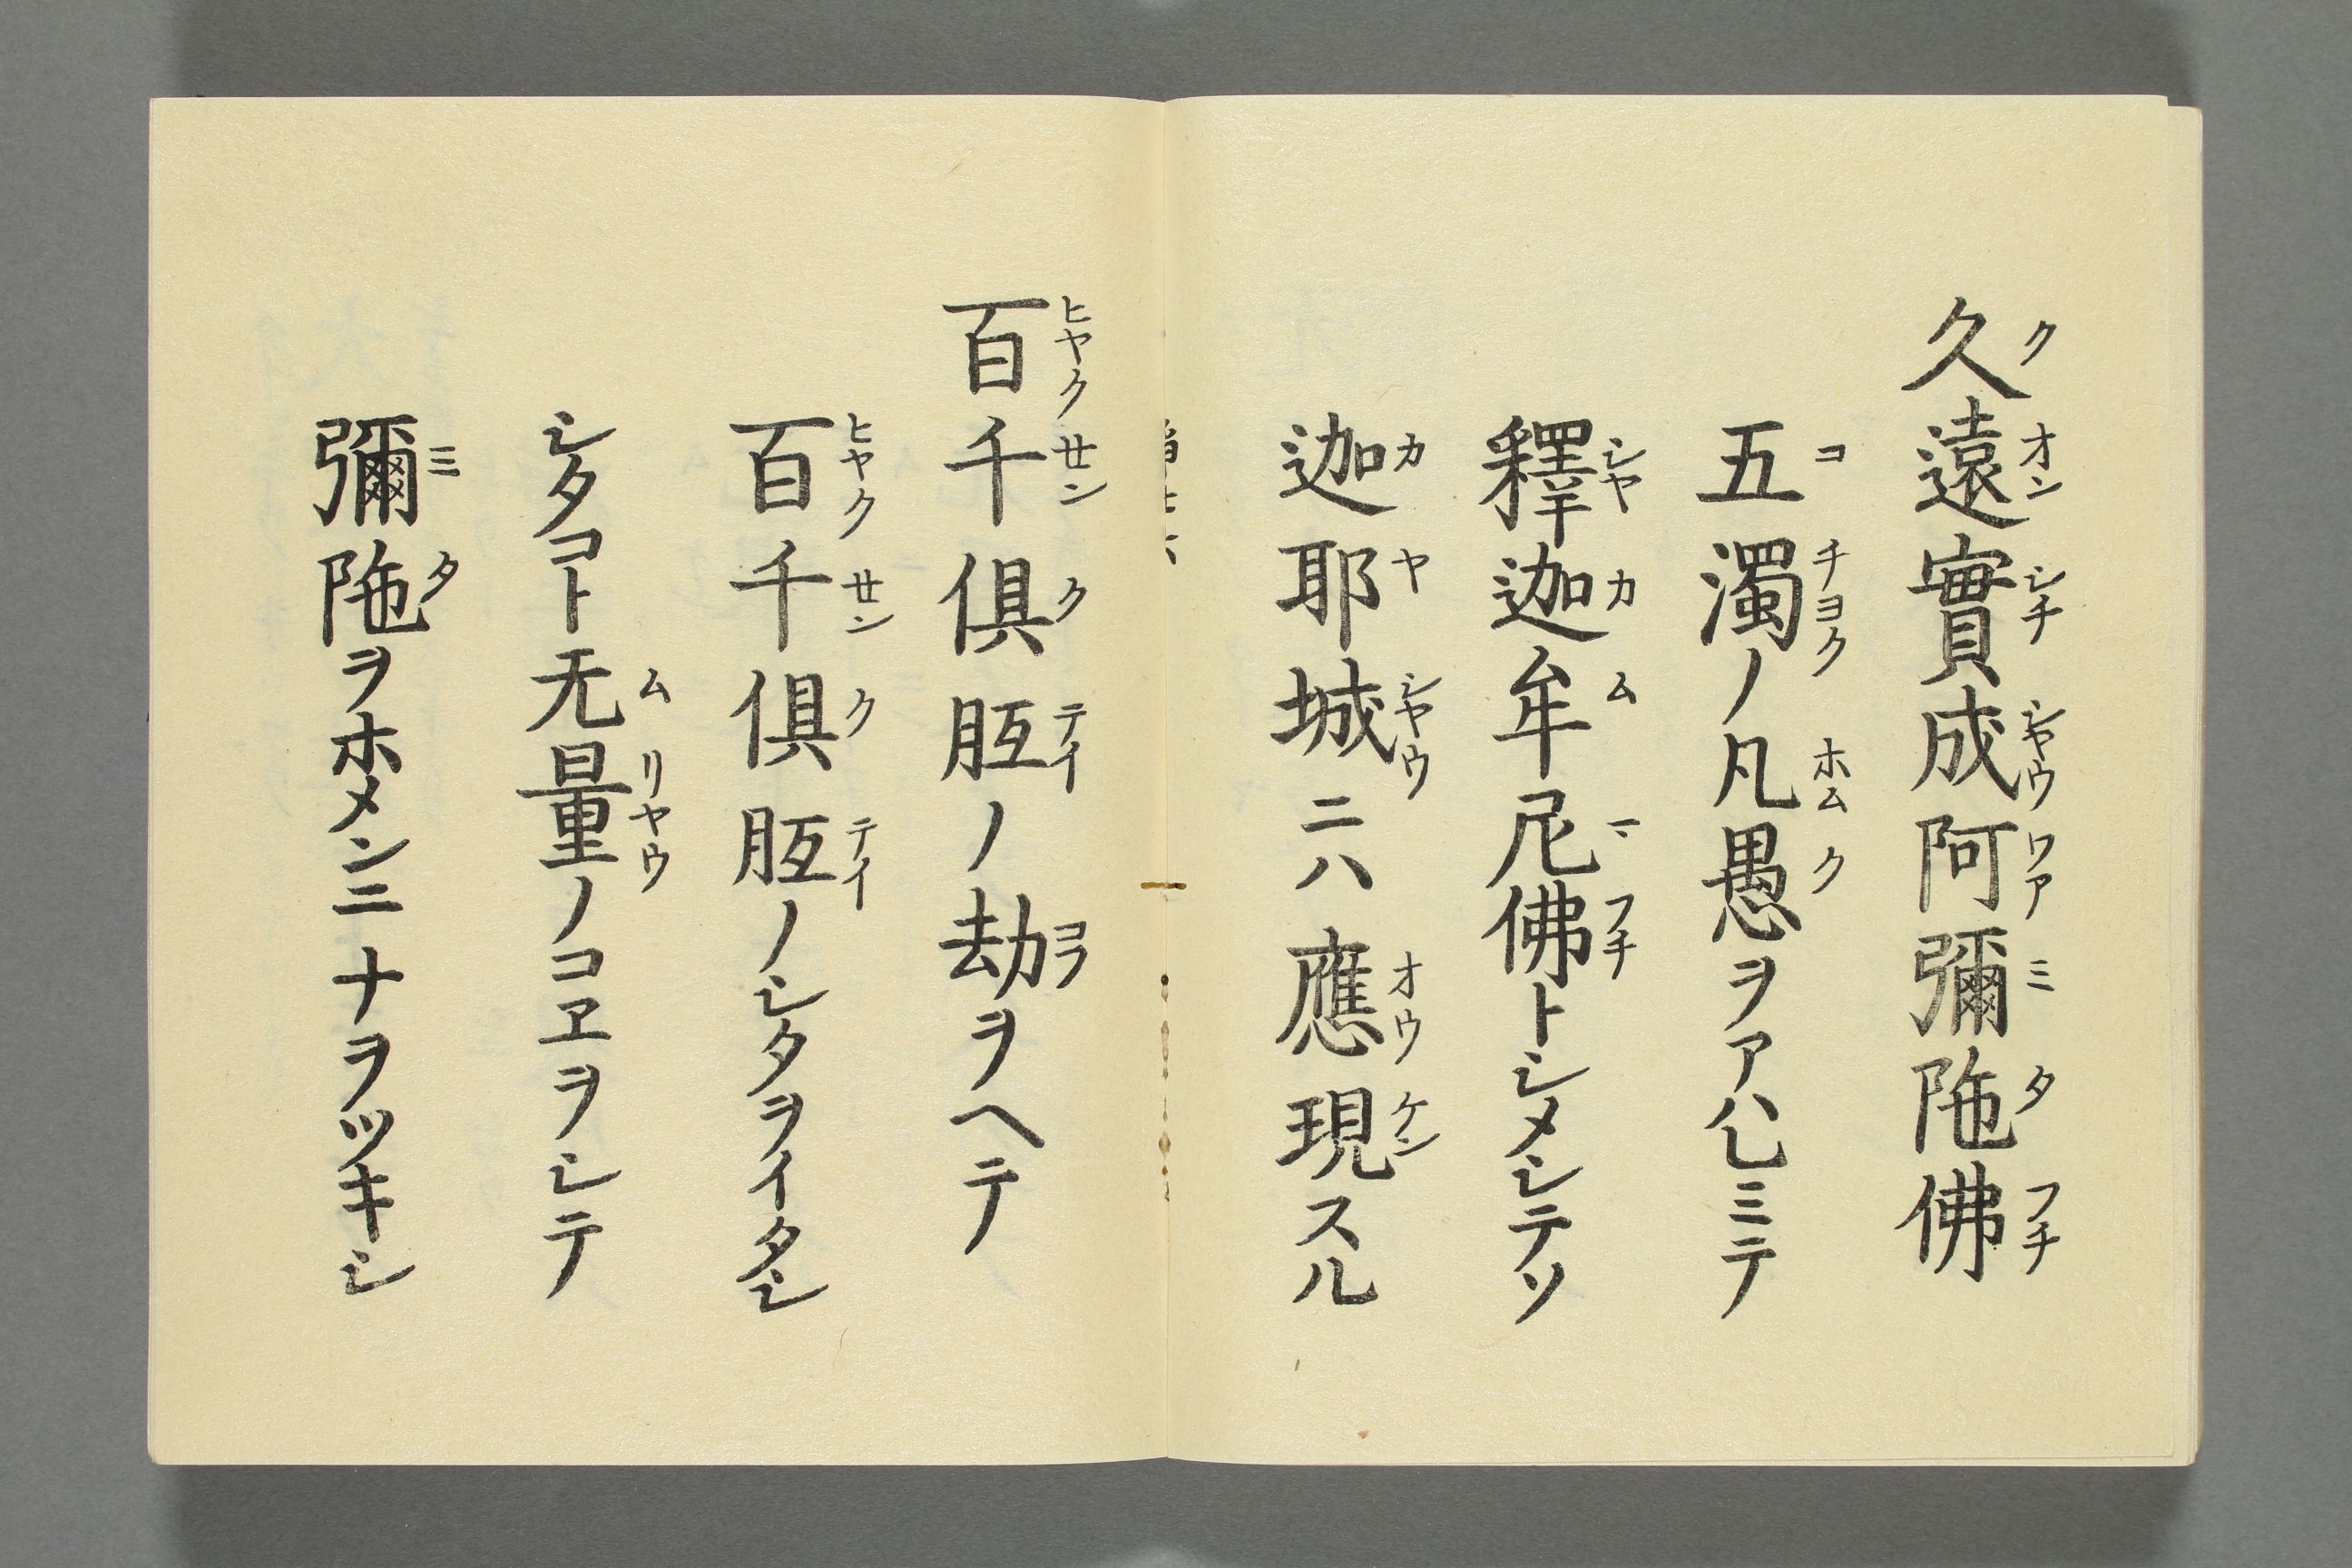 久遠實成阿彌陁佛
五濁ノ凡愚ヲアハレミテ
釋迦牟尼佛トシメシテソ
迦耶城ニハ應現スル
百千俱胝ノ劫ヲヘテ
百千俱胝ノシタヲイタシ
シタコト无量ノコヱヲシテ
彌陁ヲホメンニナヲツキシ